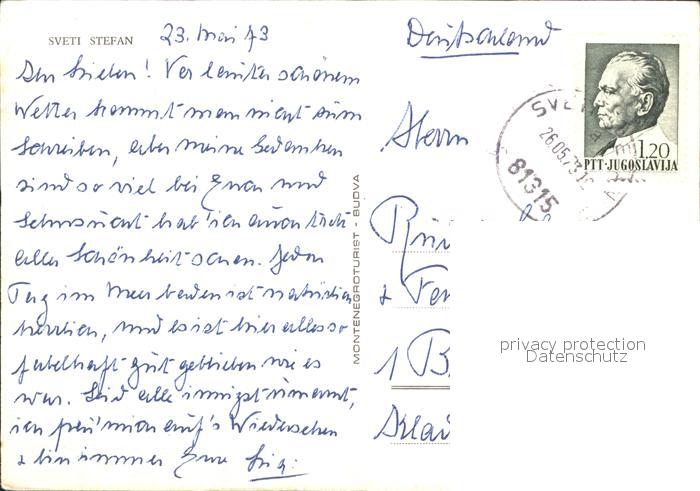 SVETI STEFAN
23. Mai 73
Ihr Lieben! Vor lauter schönem
Wetter kommt man nicht zum
Schreiben, aber meine Gedanken
sind so viel bei Euch und
Sehnsucht hab' ich auch trotz
aller Schönheit schon. Jeden
Tag im Meer baden ist natürlich
herrlich, und es ist hier alles so
fabelhaft gut geblieben wie es
war. Seid alle innigst umarmt,
ich freu' mich auf's Wiedersehen
& bin immer Eure
MONTENEGROTURIST - BUDVA
Deutschland
Herrn
&
1 B
1.20
PTT-JUGOSLAVIJA
26.05.73
81315
privacy protection
Datenschutz